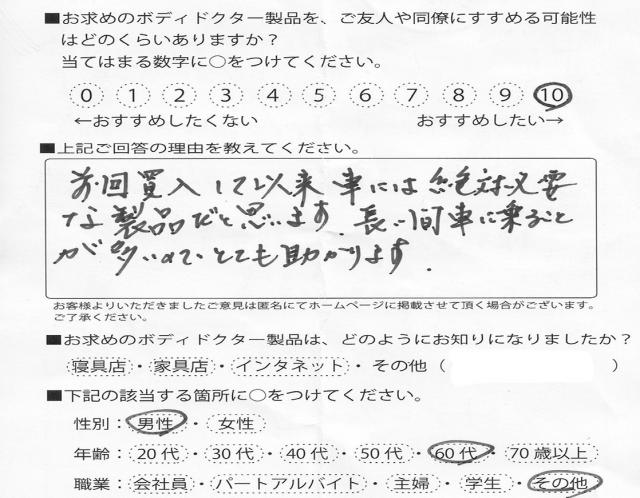 ■お求めのボディドクター製品を、ご友人や同僚にすすめる可能性
はどのくらいありますか？
当てはまる数字に○をつけてください。
0 1 2 3 4 5 6 7 8 9 10
←おすすめしたくない おすすめしたい→
■上記ご回答の理由を教えてください。
前回買入して以来車には絶対必要
な製品だと思います。長い間車に乗ること
が多いのでとても助かります。
お客様よりいただきましたご意見は匿名にてホームページに掲載させて頂く場合がございます。
ご了承ください。
■お求めのボディドクター製品は、どのようにお知りになりましたか？
寝具店・家具店・インタネット・その他（ ）
■下記の該当する箇所に○をつけてください。
性別：男性・女性
年齢：20代・30代・40代・50代・60代・70歳以上
職業：会社員・パートアルバイト・主婦・学生・その他